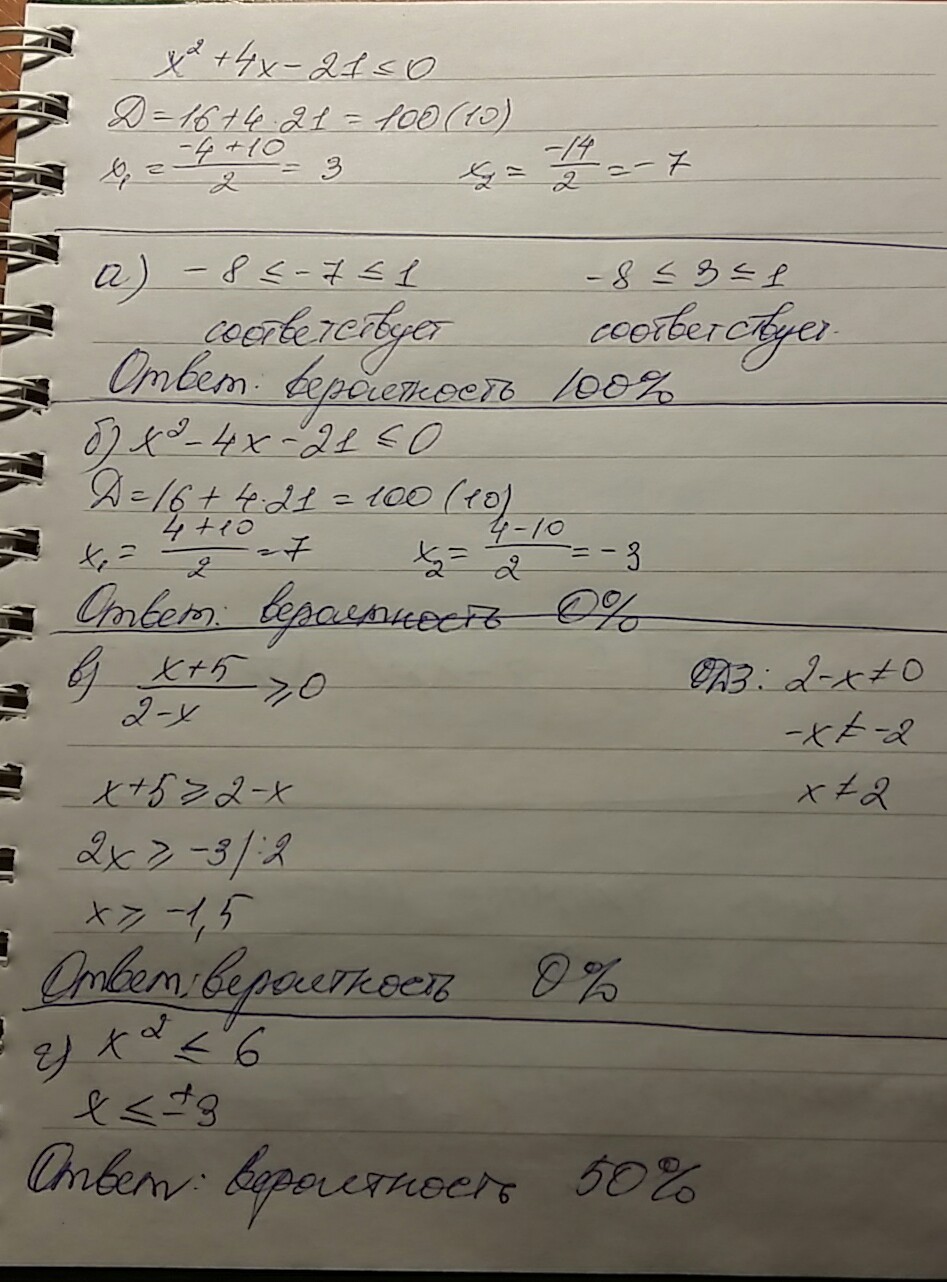 x² + 4x - 21 ≤ 0
Д = 16 + 4 · 21 = 100 (10)
x₁ = (-4 + 10)/2 = 3 x₂ = -14/2 = -7
а) -8 ≤ -7 ≤ 1 -8 ≤ 3 ≤ 1
соответствует соответствует.
Ответ. вероятность 100%
б) x² - 4x - 21 ≤ 0
Д = 16 + 4·21 = 100 (10)
x₁ = (4 + 10)/2 = 7 x₂ = (4 - 10)/2 = -3
Ответ: вероятность 0%
в) (x+5)/(2-x) ≥ 0 ОДЗ: 2-x ≠ 0
-x ≠ -2
x+5 ≥ 2-x x ≠ 2
2x ≥ -3 |:2
x ≥ -1,5
Ответ: вероятность 0%
г) x² ≤ 6
x ≤ ±3
Ответ: вероятность 50%